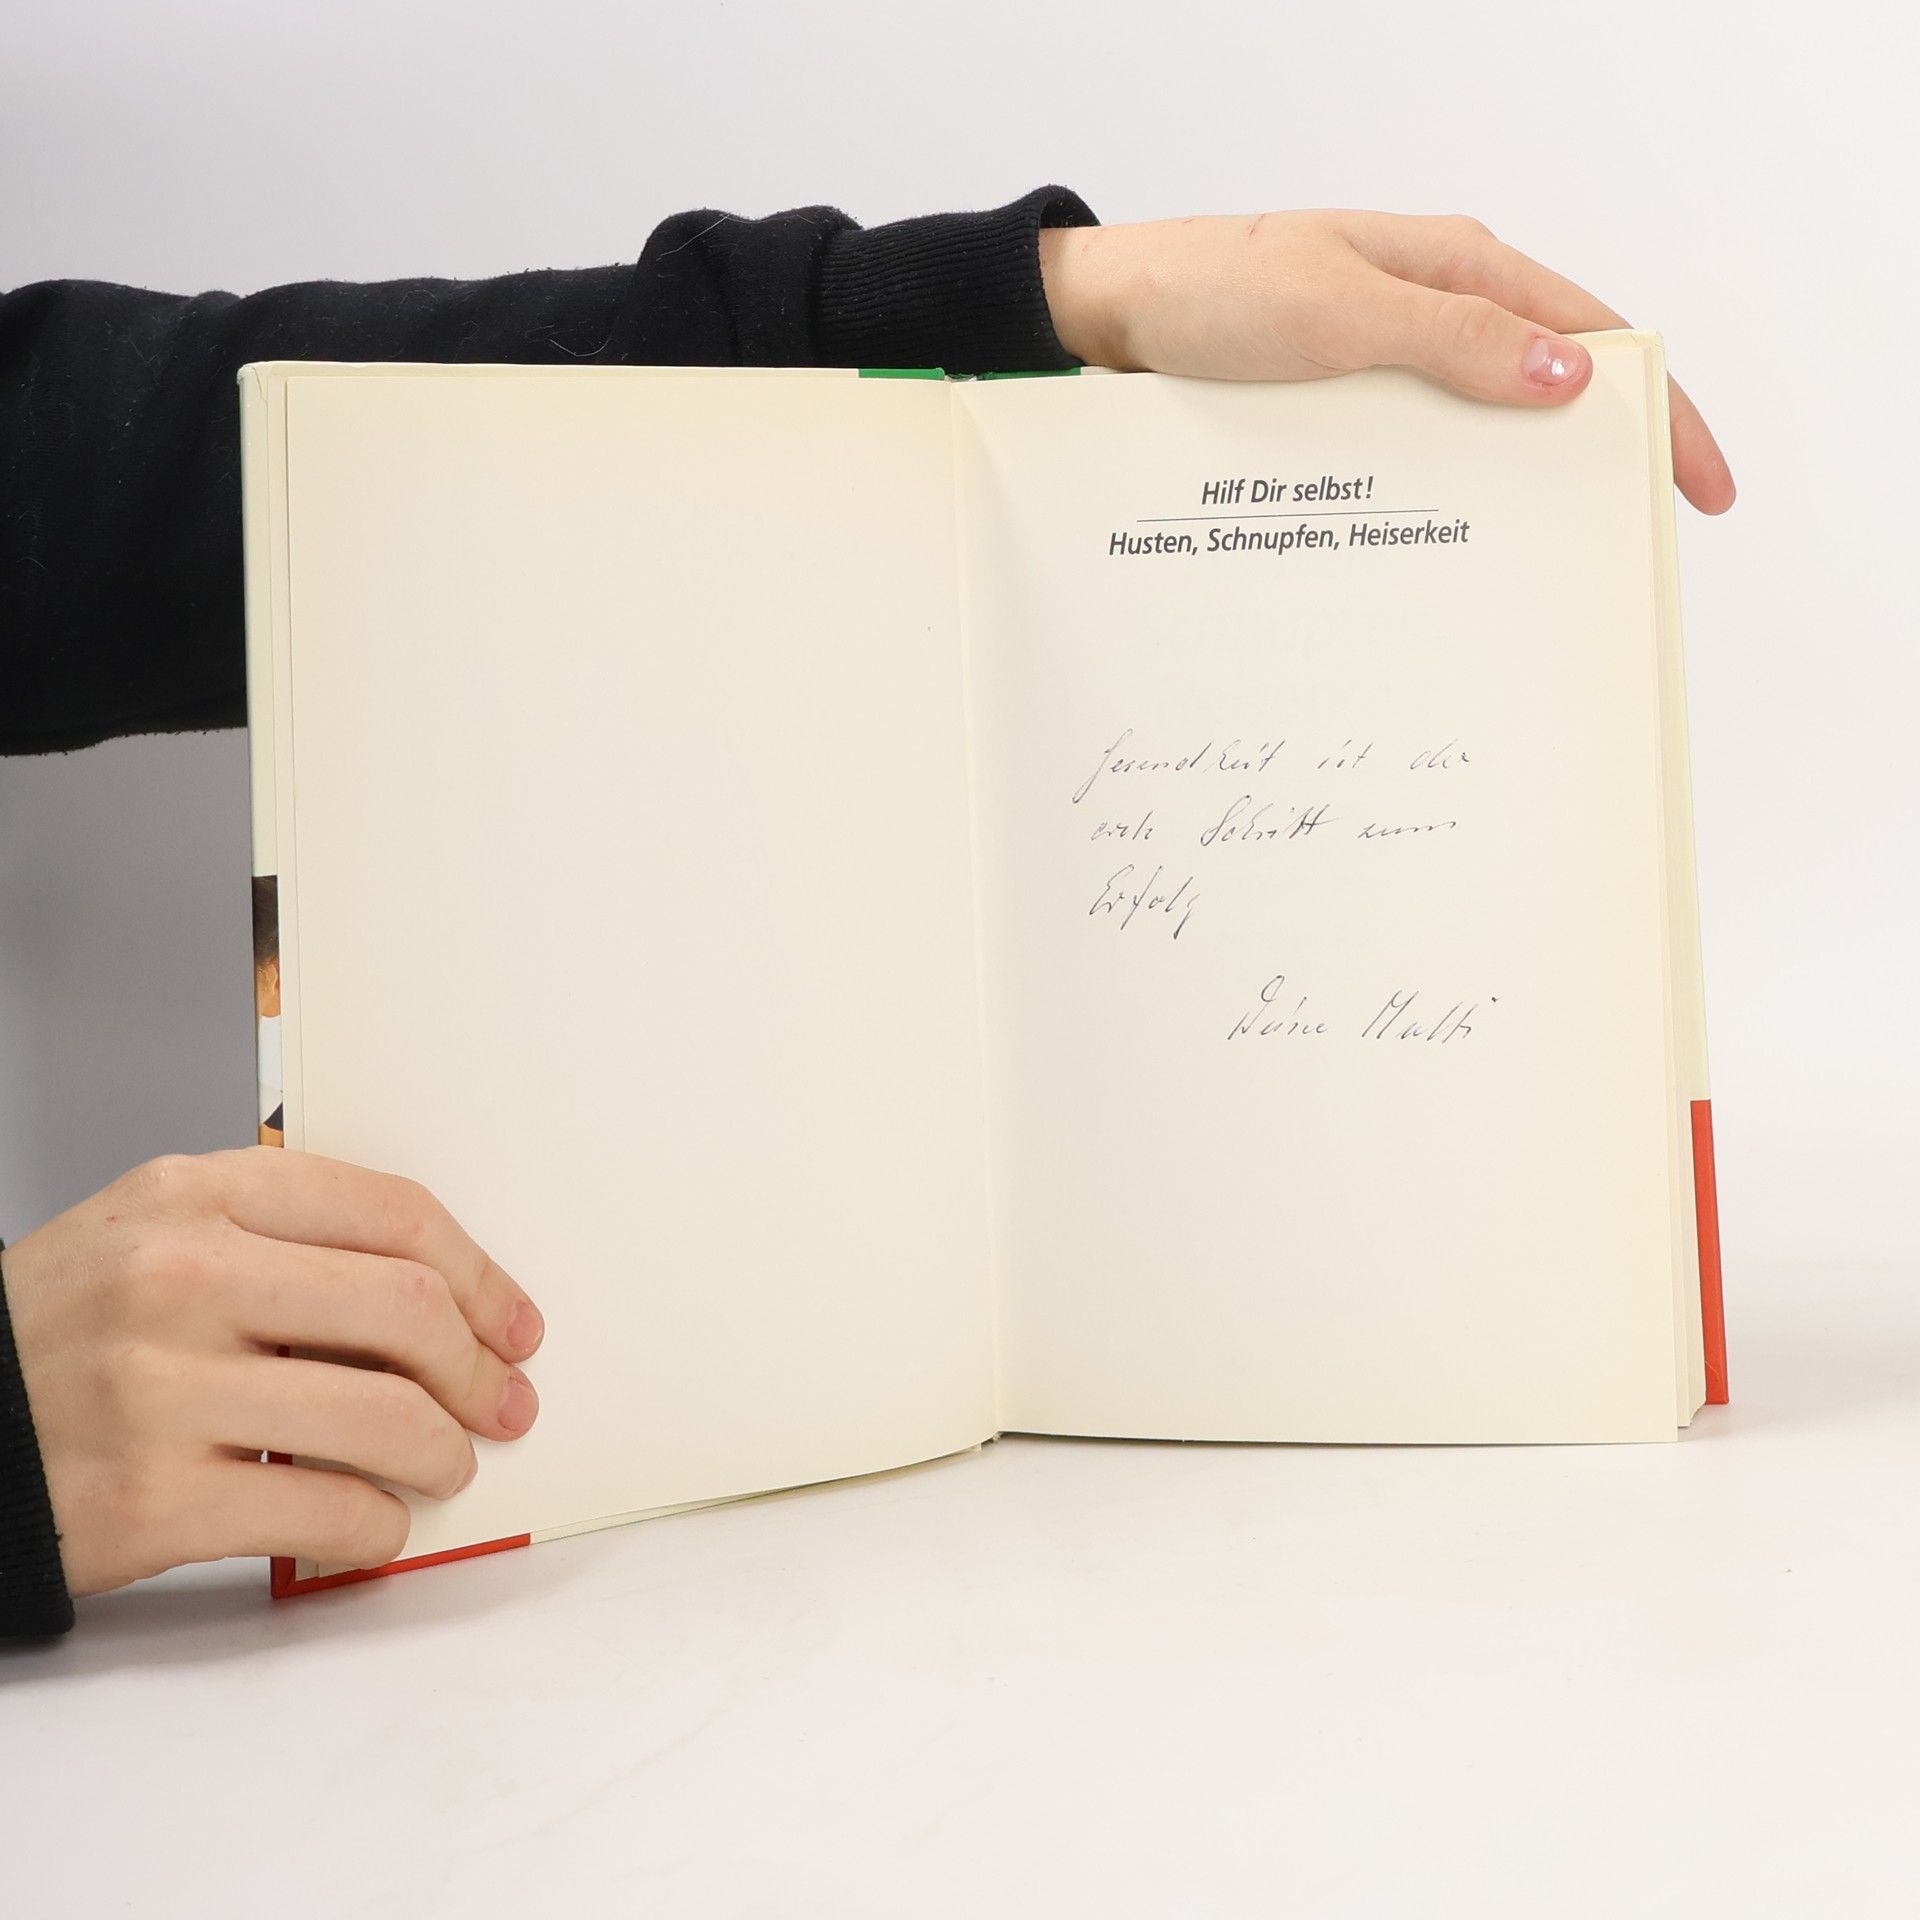 Hilf Dir selbst!
Husten, Schnupfen, Heiserkeit
Gesundheit ist der
erste Schritt zum
Erfolg
Deine Mutti